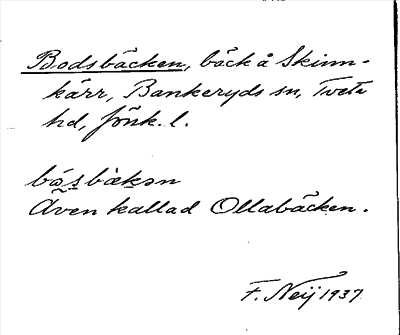 Bodsbäcken, bäck å Skinn-
kärr, Bankeryds sn, Tveta
hd, Jönk. l.
bo̰s̱bækən
Även kallad Ollabäcken.
F. Neij 1937